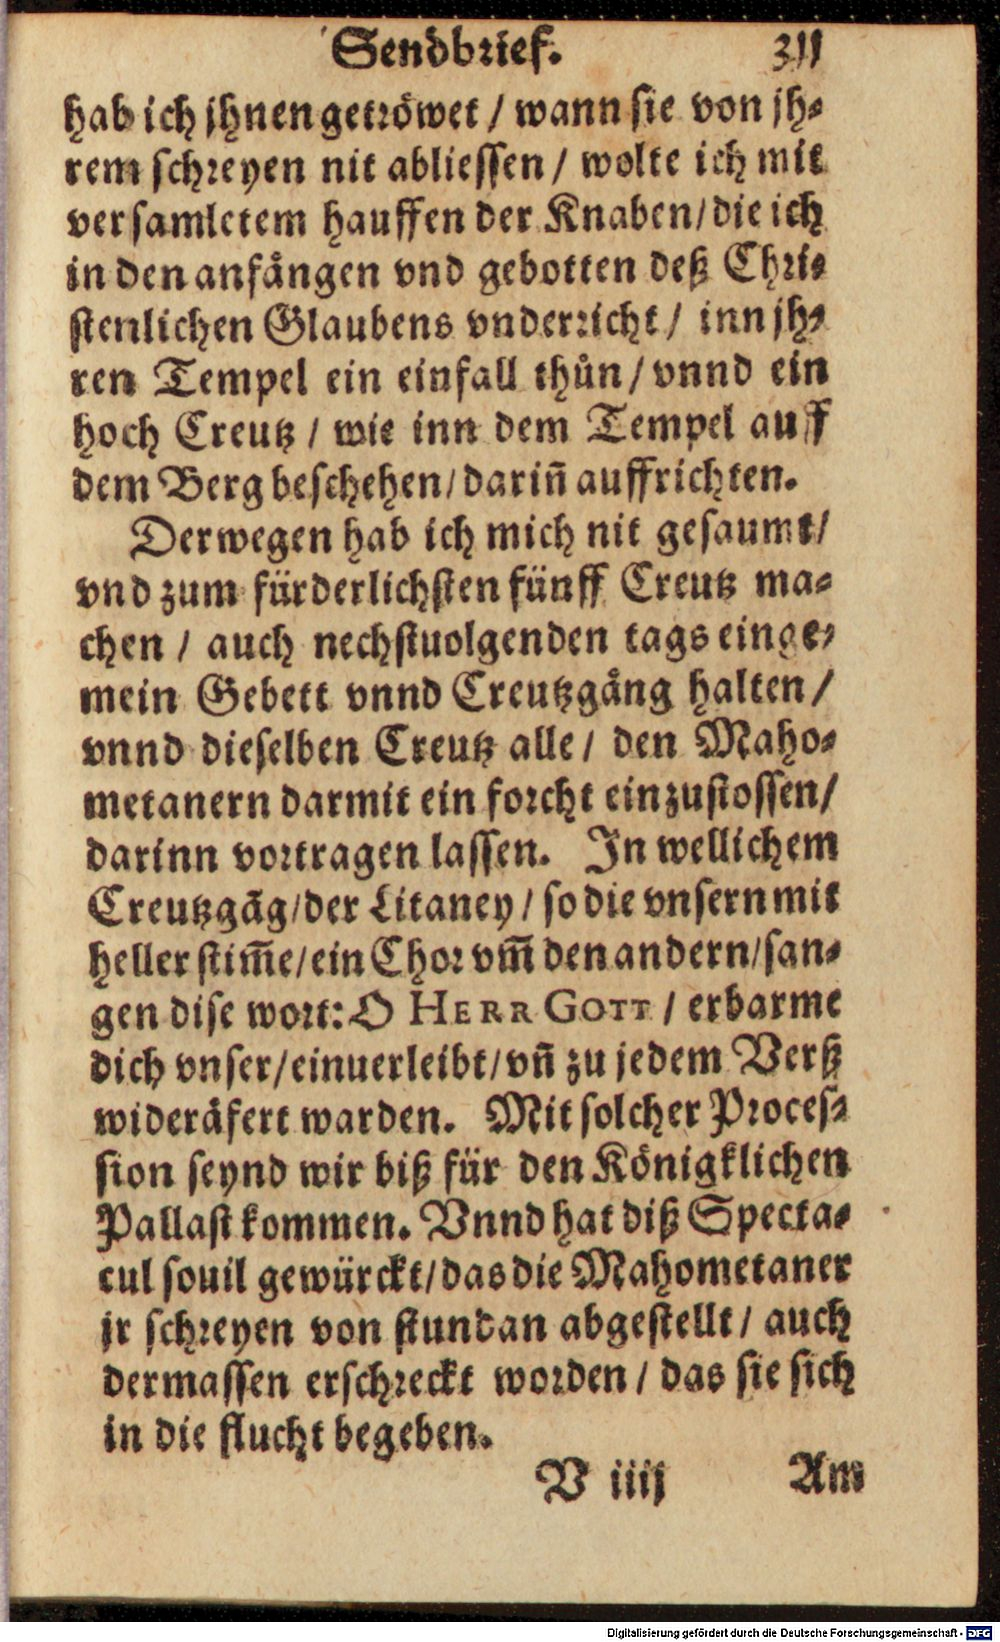 Sendbrief. 311
hab ich jhnen getröwet / wann sie von jh-
rem schreyen nit abliessen / wolte ich mit
versamletem hauffen der Knaben / die ich
in den anfängen vnd gebotten deß Chri-
stenlichen Glaubens vnderricht / inn jh-
ren Tempel ein einfall thůn / vnnd ein
hoch Creutz / wie inn dem Tempel auff
dem Berg beschehen / darin̄ auffrichten.
Derwegen hab ich mich nit gesaumt /
vnd zum fürderlichsten fünff Creutz ma-
chen / auch nechstuolgenden tags ein ge-
mein Gebett vnnd Creutzgäng halten /
vnnd dieselben Creutz alle / den Maho-
metanern darmit ein forcht einzustossen /
darinn vortragen lassen. In wellichem
Creutzgãg / der Litaney / so die vnsern mit
heller stim̄e / ein Chor vm̄ den andern / san-
gen dise wort: O HERR GOTT / erbarme
dich vnser / einuerleibt / vn̄ zu jedem Verß
wideräfert warden. Mit solcher Proces-
sion seynd wir biß für den Königklichen
Pallast kommen. Vnnd hat diß Specta-
cul souil gewürckt / das die Mahometaner
jr schreyen von stundan abgestellt / auch
dermassen erschreckt worden / das sie sich
in die flucht begeben.
V iiij Am
Digitalisierung gefördert durch die Deutsche Forschungsgemeinschaft - DFG